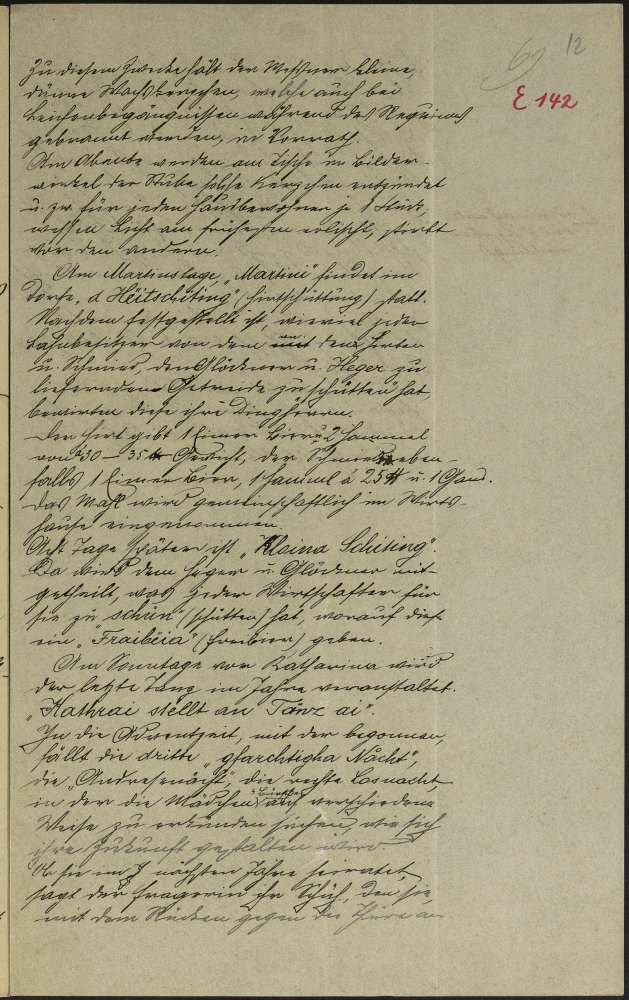 12
69
E 142
Zu diesem Zwecke hält der Meßner kleine,
dünne Wachskerzchen, welche auch bei
Leichenbegängnissen während des Requiems
gebrannt werden, in Vorrath.
Am Abende werden am Tische im Bilder-
winkel der Stube solche Kerzchen entzündet
u. zw. für jeden Hausbewohner je 1 Stück,
wessen Licht am frühesten erlischt, stirbt
vor den andern.
Am Martinstage, „Martini" findet im
Dorfe, „d Hëitschiting" (Hirtschüttung) statt.
Nachdem festgestellt ist, wieviel jeder
Bahnbesitzer von dem mit dem Hirten
u. Schmied, den Glöckner u. Heger zu
liefernden Getreide zu „schütten" hat,
bewirten diese ihre Dingherrn.
Der Hirt gibt 1 Eimer Bier u. 2 Hammel
von 30 – 35 ℔ Gewicht, der Schmied eben-
falls 1 Eimer Bier, 1 Hammel à 25 ℔ u. 1 Gans.
Das Mahl wird gemeinschaftlich im Wirts-
hause eingenommen.
Acht Tage später ist „Klaina Schiting".
Da wird dem Heger u. Glöckner mit-
getheilt, was jeder Wirtschafter für
sie zu „schün" (schütten) hat, worauf diese
ein „Fraibëia" (Freibier) geben.
Am Sonntage vor Katharina wird
der letzte Tanz im Jahre veranstaltet.
„Kathrai stëllt an Tånz ai".
In die Adventzeit, mit der begonnen,
fällt die dritte „gfarchtigha Nåcht",
die „Andresenåcht", die rechte Losnacht,
in der die Mädchen u. Bursche auf verschiedene
Weise zu erkunden suchen, wie sich
ihre Zukunft gestalten wird.
Ob sie im nächsten Jahre heiratet,
sagt der Fragerin ihr Schuh, den sie
mit dem Rücken gegen die Thüre an